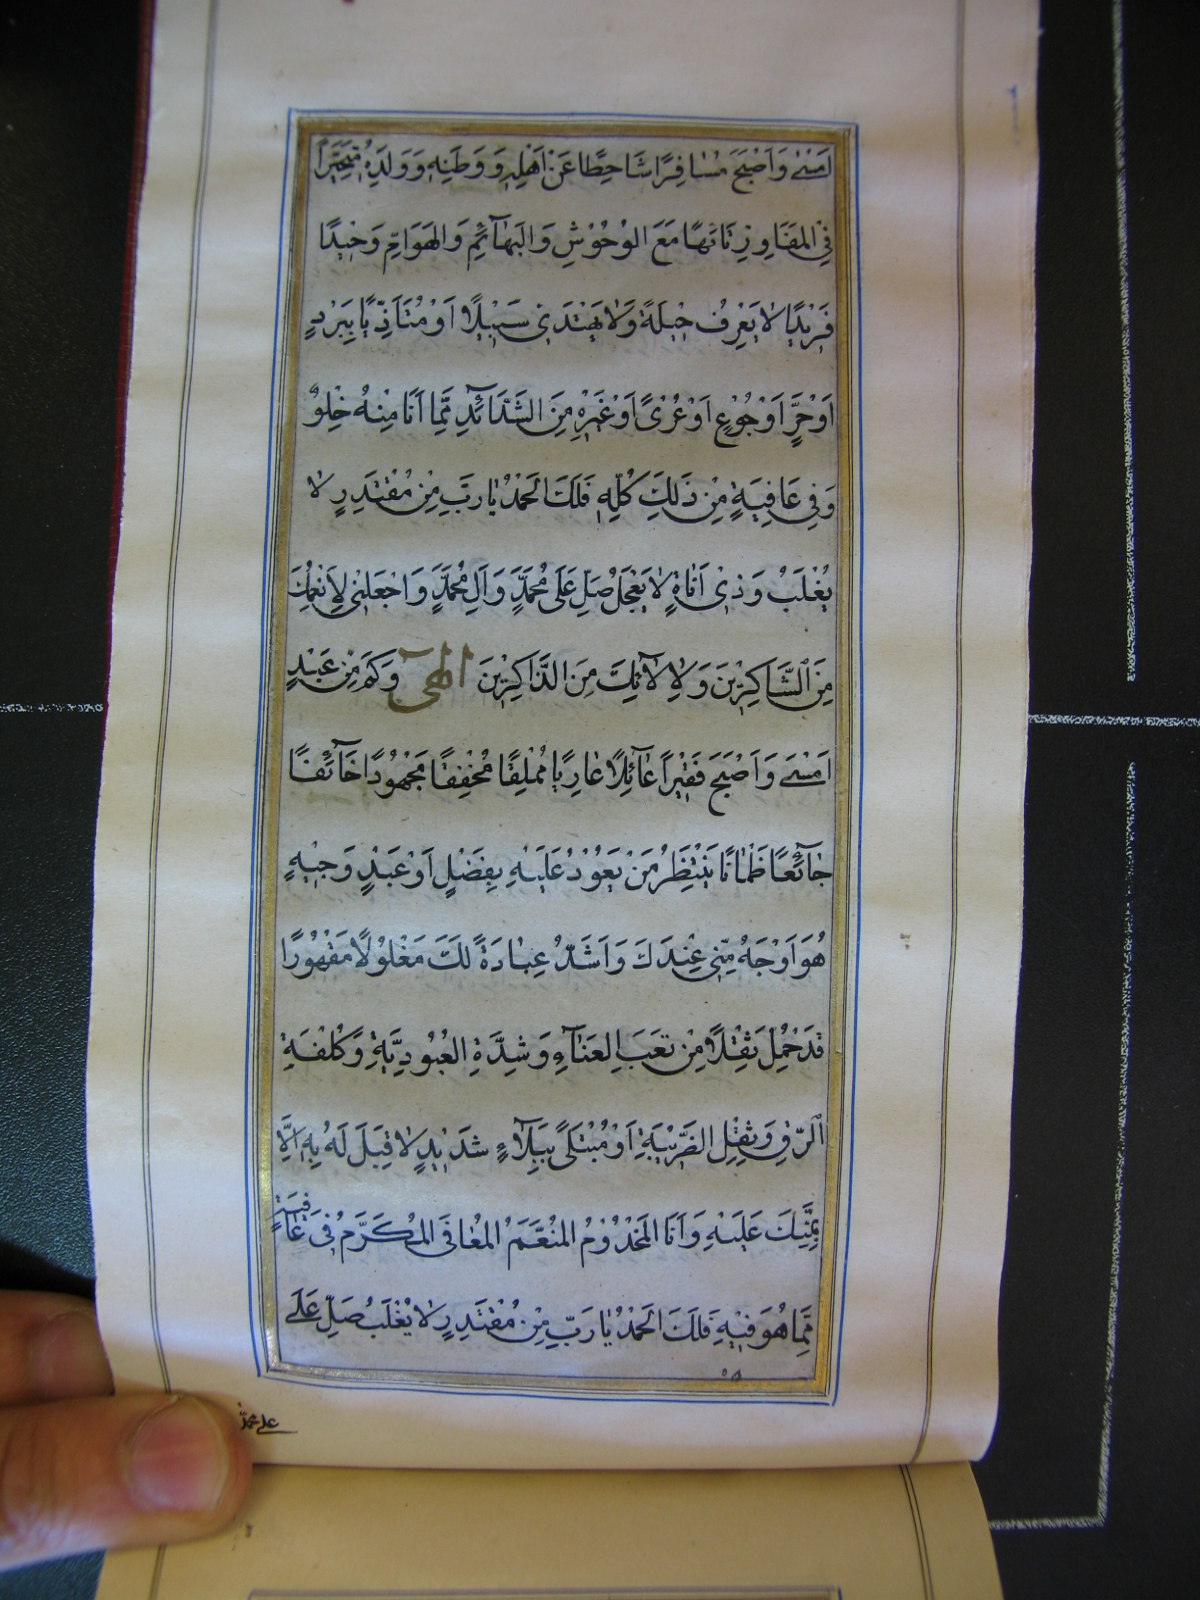 اَمْسٰى وَاَصْبَحَ مُسَافِرًا شَاحِطًا عَنْ اَهْلِهٖ وَوَطَنِهٖ وَوَلَدِهٖ مُتَحَيِّرًا
فِي المَفَاوِزِ تَائِهًا مَعَ الوُحُوْشِ وَالبَهَآئِمِ وَالهَوَامِّ وَحِيْدًا
فَرِيْدًا لَا يَعْرِفُ حِيْلَةً وَلَا يَهْتَدِيْ سَبِيْلًا اَوْ مُتَاَذِّيًا بِبَرْدٍ
اَوْ حَرٍّ اَوْ جُوْعٍ اَوْ عُرْىً اَوْ غَيْرِهٖ مِنَ الشَّدَآئِدِ مِمَّا اَنَا مِنْهُ خِلْوٌ
وَفِي عَافِيَةٍ مِنْ ذَلِكَ كُلِّهٖ فَلَكَ الحَمْدُ يَا رَبِّ مِنْ مُقْتَدِرٍ لَا
يُغْلَبُ وَذِيْ اَنَاةٍ لَا يَعْجَلُ صَلِّ عَلَى مُحَمَّدٍ وَآلِ مُحَمَّدٍ وَاجْعَلْنِيْ لِاَنْعُمِكَ
مِنَ الشَّاكِرِيْنَ وَلِاٰلَآئِكَ مِنَ الذَّاكِرِيْنَ الٰهِيْ وَكَمْ مِنْ عَبْدٍ
اَمْسٰى وَاَصْبَحَ فَقِيْرًا عَآئِلًا عَارِيًا مُمْلِقًا مُخْفِقًا مَجْهُوْدًا خَآئِفًا
جَآئِعًا ظَمْاٰنًا يَنْتَظِرُ مَنْ يَعُوْدُ عَلَيْهِ بِفَضْلٍ اَوْ عَبْدٍ وَجِيْهٍ
هُوَ اَوْجَهُ مِنِّيْ عِنْدَكَ وَاَشَدُّ عِبَادَةً لَكَ مَغْلُوْلًا مَقْهُوْرًا
قَدْ حُمِلَ ثِقْلًا مِنْ تَعَبِ العَنَآءِ وَشِدَّةِ العُبُوْدِيَّةِ وَكُلْفَةِ
الرِّقِ وَثِقْلِ الضَّرِيْبَةِ اَوْ مُبْتَلًى بِبَلَآءٍ شَدِيْدٍ لَا قِبَلَ لَهُ بِهٖ اِلَّا
بِمَنِّكَ عَلَيْهِ وَاَنَا المَخْدُوْمُ المُنْعَمُ المُعَافَى المُكَرَّمُ فِيْ عَافِيَةٍ
مِمَّا هُوَ فِيْهِ فَلَكَ الحَمْدُ يَا رَبِّ مِنْ مُقْتَدِرٍ لَا يُغْلَبُ صَلِّ عَلَى
على محمد